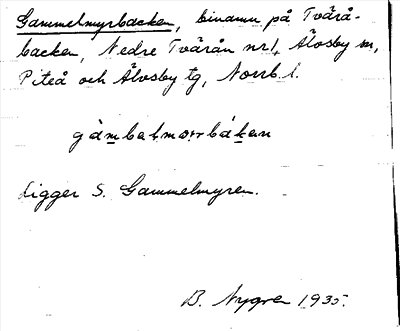 Gammelmyrbacken, binamn på Tvärå-
backen, Nedre Tvärån nr 1, Älvsby sn,
Piteå och Älvsby tg, Norrb. l.
gàmbalmorrbákan
Ligger S. Gammelmyren.
B. Nygren 1935.